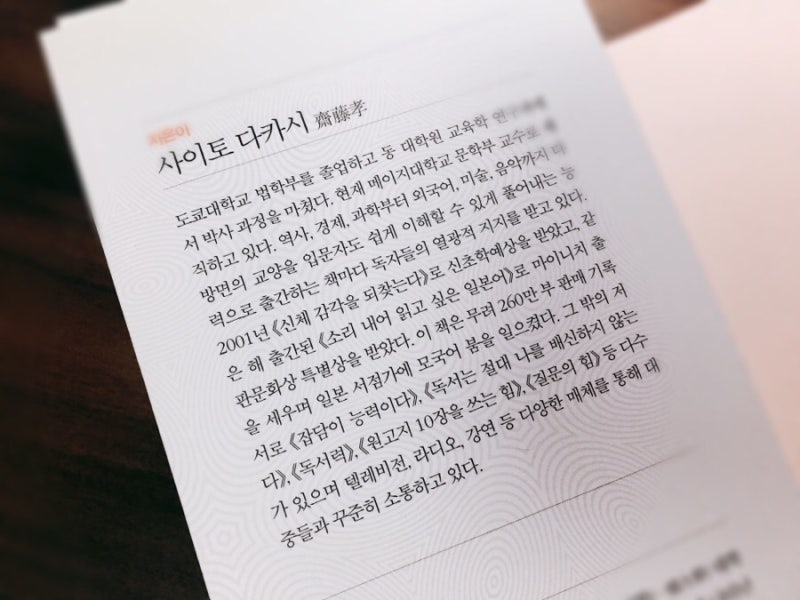 지은이
사이토 다카시 齋藤孝
도쿄대학교 법학부를 졸업하고 동 대학원 교육학 연구과에
서 박사 과정을 마쳤다. 현재 메이지대학교 문학부 교수로 재
직하고 있다. 역사, 경제, 과학부터 외국어, 미술, 음악까지 다
방면의 교양을 입문자도 쉽게 이해할 수 있게 풀어내는 능
력으로 출간하는 책마다 독자들의 열광적 지지를 받고 있다.
2001년 《신체 감각을 되찾는다》로 신초학예상을 받았고, 같
은 해 출간된 《소리 내어 읽고 싶은 일본어》로 마이니치 출
판문화상 특별상을 받았다. 이 책은 무려 260만 부 판매 기록
을 세우며 일본 서점가에 모국어 붐을 일으켰다. 그 밖의 저
서로 《잡담이 능력이다》, 《독서는 절대 나를 배신하지 않는
다》, 《독서력》, 《원고지 10장을 쓰는 힘》, 《질문의 힘》 등 다수
가 있으며 텔레비전, 라디오, 강연 등 다양한 매체를 통해 대
중들과 꾸준히 소통하고 있다.